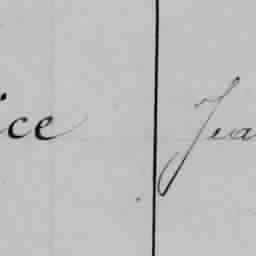 ice Jea